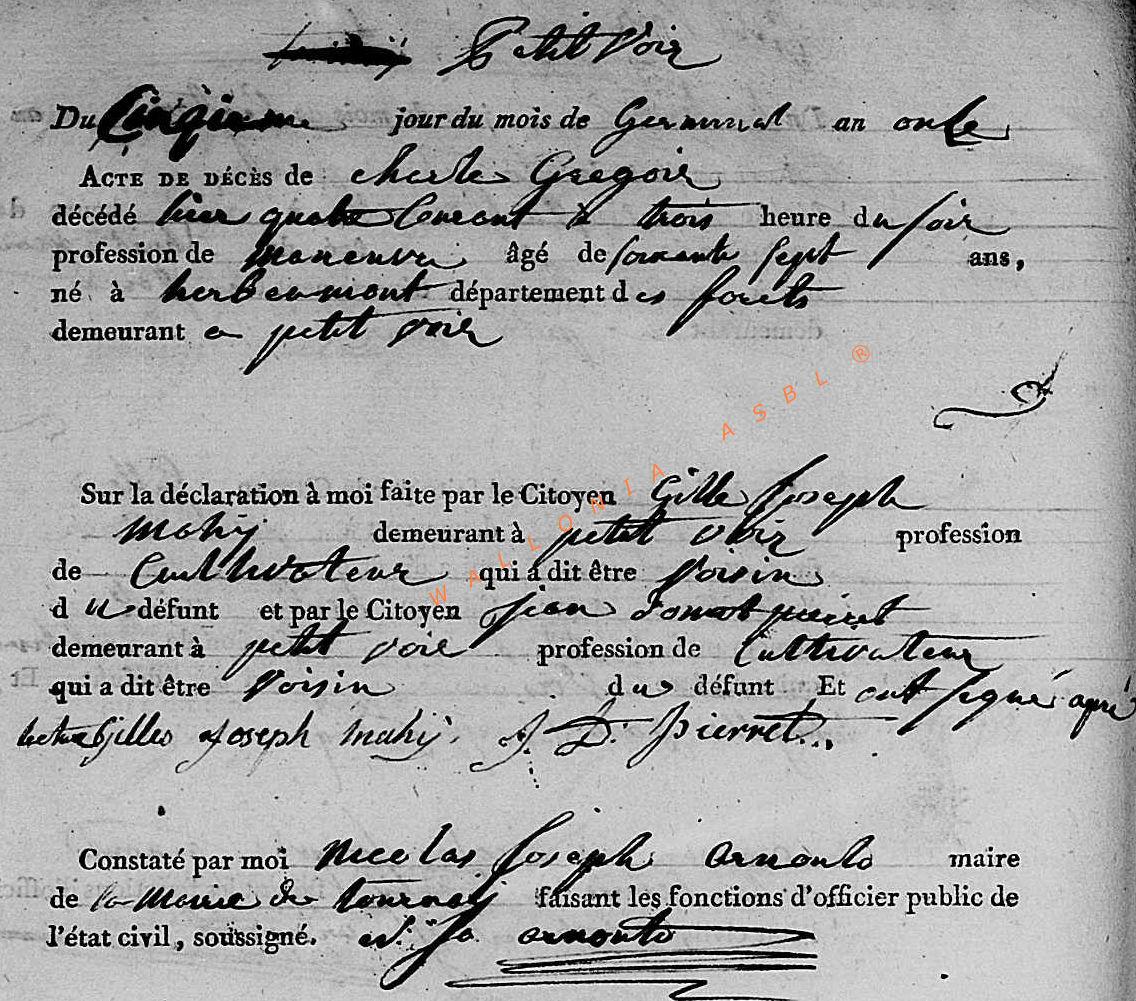 Petit Voir
Du Cinqieme jour du mois de Germinal an onze
ACTE DE DÉCÈS de charle Gregoir
décédé hier quatre Courant a trois heure du soir
profession de manouvre âgé de soixante sept ans,
né à herbeumont département des forets
demeurant a petit voir
Sur la déclaration à moi faite par le Citoyen Gille Joseph
mahÿ demeurant à petit voir profession
de Cultivateur qui a dit être Voisin
du défunt et par le Citoyen jean pierret
demeurant à petit voir profession de Cultivateur
qui a dit être Voisin du défunt Et ont signé apré
lecture Gilles Joseph mahÿ. J. D. Pierret...
Constaté par moi Nicolas Joseph arnould maire
de la Mairie de tournaÿ faisant les fonctions d'officier public de
l'état civil, soussigné. N. Jo. arnould
WALLONIA ASBL ®